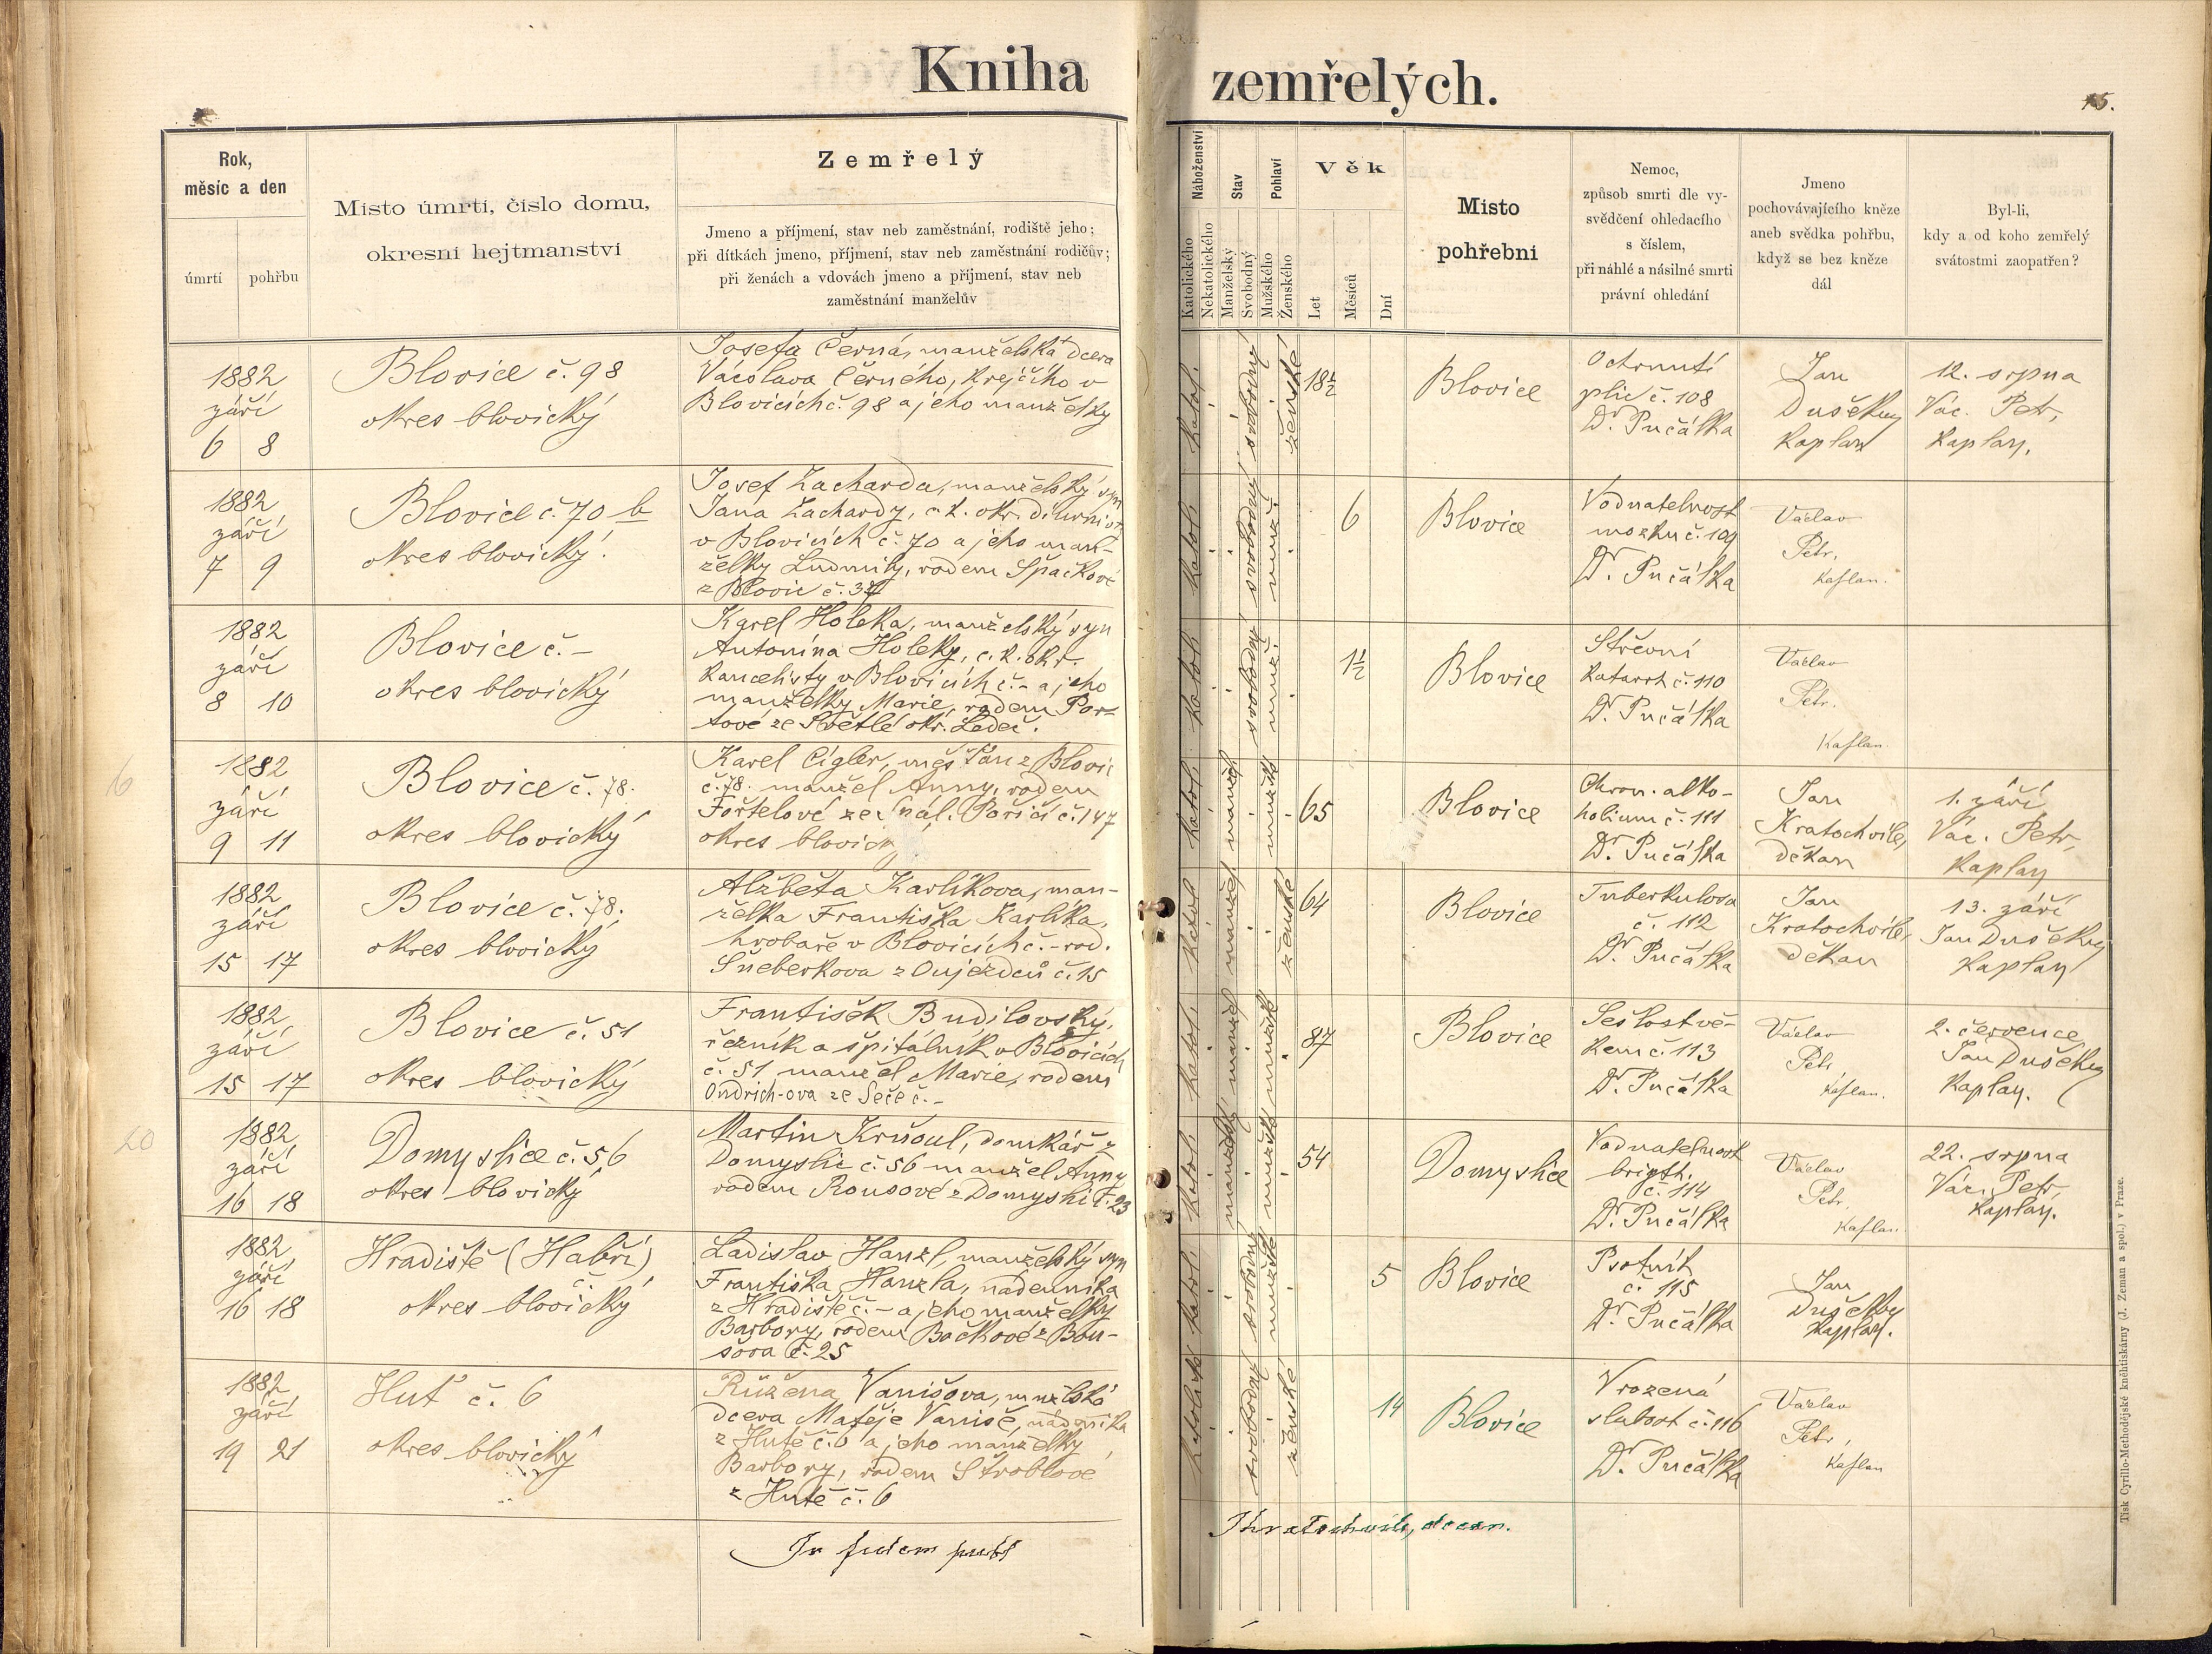 Kniha zemřelých.
15.
Rok,
měsíc a den
úmrtí
pohřbu
Místo úmrtí, číslo domu,
okresní hejtmanství
Zemřelý
Jmeno a příjmení, stav neb zaměstnání, rodiště jeho;
při dítkách jmeno, příjmení, stav neb zaměstnání rodičův;
při ženách a vdovách jmeno a příjmení, stav neb
zaměstnání manželův
Náboženství
Katolického
Nekatolického
Stav
Manželský
Svobodný
Pohlaví
Mužského
Ženského
Věk
Let
Měsíců
Dní
Místo
pohřební
Nemoc,
způsob smrti dle vy-
svědčení ohledacího
s číslem,
při náhlé a násilné smrti
právní ohledání
Jmeno
pochovávajícího kněze
aneb svědka pohřbu,
když se bez kněze
dál
Byl-li,
kdy a od koho zemřelý
svátostmi zaopatřen?
1882
září
6 8
Blovice č. 98
okres blovický
Josefa Černá, manželská dcera
Václava Černého, krejčího v
Blovicích č. 98 a jeho manželky
katol.
svobodný
ženské
18½
Blovice
Ochrnutí
plic č. 108
Dr. Pučálka
Jan
Dušek
kaplan
12. srpna
Vác. Petr,
kaplan.
1882
září
7 9
Blovice č. 70 b
okres blovický.
Josef Zacharda, manželský syn
Jana Zachardy, c. k. okr. diurnist
v Blovicích č. 70 a jeho man-
želky Ludmily, rodem Špačkové
z Blovic č. 37
katol.
svobodný
muž.
6
Blovice
Vodnatelnost
mozku č. 109
Dr. Pučálka
Václav
Petr,
kaplan.
1882
září
8 10
Blovice č. -
okres blovický
Karel Holeka, manželský syn
Antonína Holeky, c. k. okr.
kancelisty v Blovicích č. - a jeho
manželky Marie, rodem Por-
tové ze Světlé okr. Ledeč.
katol.
svobodný
muž.
1½
Blovice
Střevní
katarrh č. 110
Dr. Pučálka
Václav
Petr.
Kaplan.
6
1882
září
9 11
Blovice č. 78.
okres blovický
Karel Cigler, měšťan z Blovic
č. 78. manžel Anny, rodem
Fořtelové ze Spál. Poříčí č. 147
okres blovický
katol.
manžel
mužské
65
Blovice
Chron. alko-
holium č. 111
Dr. Pučálka
Jan
Kratochvíle,
děkan
1. září
Vác. Petr,
kaplan
1882
září
15 17
Blovice č. 78.
okres blovický
Alžběta Karlíkova, man-
želka Františka Karlíka,
hrobaře v Blovicích č. - rod.
Šneberkova z Oujezdců č. 15
katol.
manžel
ženské
64
Blovice
Tuberkulosa
č. 112
Dr. Pučálka
Jan
Kratochvíle,
děkan
13. září
Jan Dušek
kaplan
1882
září
15 17
Blovice č. 51
okres blovický
František Budilovský,
řezník a špitálník v Blovicích
č. 51 manžel Marie, rodem
Ondrich-ova ze Seče č. -
katol.
manžel
mužské
87
Blovice
Sešlost vě-
kem č. 113
Dr. Pučálka
Václav
Petr
kaplan.
2. července
Jan Dušek
kaplan.
20
1882
září
16 18
Domyslice č. 56
okres blovický
Martin Krňoul, domkář z
Domyslic č. 56 manžel Anny
rodem Rousové z Domyslic č. 23
katol.
manželský
mužské
54
Domyslice
Vodnatelnost
brigth.
č. 114
Dr. Pučálka
Václav
Petr,
kaplan.
22. srpna
Vác. Petr,
kaplan.
1882
září
16 18
Hradiště (Habří)
č.
okres blovický
Ladislav Hanzl, manželský syn
Františka Hanzla, nádenníka
z Hradiště č. - a jeho manželky
Barbory, rodem Bočkové z Bou-
šova č. 25
katol.
svobodný
mužské
5
Blovice
Psotník
č. 115
Dr. Pučálka
Jan
Dušek
kaplan.
1882
září
19 21
Huť č. 6
okres blovický
Růžena Vanišova, manželská
dcera Matěje Vaniše, nádeníka
z Hutě č. 6 a jeho manželky
Barbory, rodem Štroblové
z Hutě č. 6
katolické
svobodný
ženské
14
Blovice
Vrozená
slabost č. 116
Dr. Pučálka
Václav
Petr,
kaplan
In fidem
Kratochvíle, decan.
Tisk Cyrillo-Methodějské knihtiskárny (J. Zeman a spol.) v Praze.